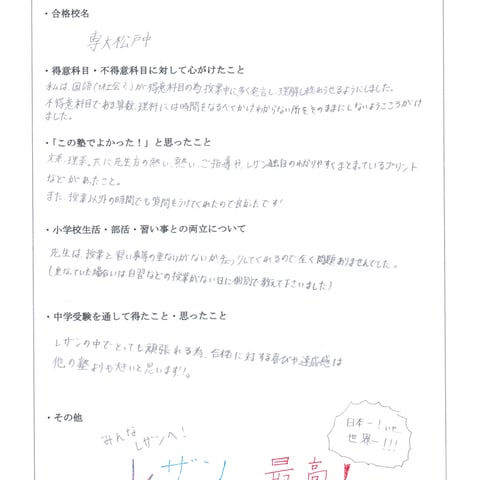 ・合格校名
専大松戸中
・得意科目・不得意科目に対して心がけたこと
私は、国語(と社会)が得意科目の為、授業中に多く発言し、理解し終わらせるようにしました。
不得意科目である算数、理科には時間をなるべくかけわからない所をそのままにしないようこころがけ
ました。
・「この塾でよかった！」と思ったこと
文系、理系、共に先生方の熱い、熱い、ご指導や、レザン独自のわかりやすくまとまっているプリント
などがあったこと。
また、授業以外の時間でも質問もうけてくれたので良かったです!
・小学校生活・部活・習い事との両立について
先生は、授業と習い事等の重なりがないかチェックしてくれるので全く問題ありませんでした。
(重なっていた場合には自習などの授業がない日に個別で教えて下さいました)
・中学受験を通して得たこと・思ったこと
レザンの中でとっても頑張れる為、合格に対する喜びや達成感は
他の塾よりも大きいと思います!!。
・その他
みんな
レザンへ!
日本一!いや
世界一!!!
レザン 最高!